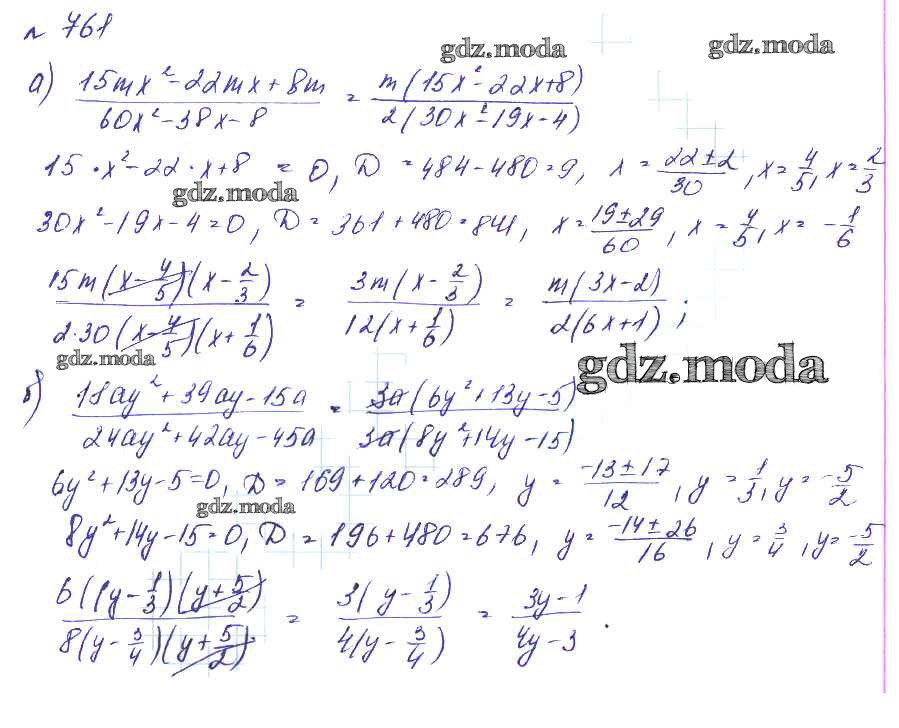 № 761
gdz.moda
gdz.moda
а) (15mx² - 22mx + 8m)/(60x² - 38x - 8) = m(15x² - 22x + 8)/2(30x² - 19x - 4)
15 · x² - 22 · x + 8 = 0, D = 484 - 480 = 9, x = (22 ± 2)/30, x = 4/5, x = 2/3
gdz.moda
30x² - 19x - 4 = 0, D = 361 + 480 = 841, x = (19 ± 29)/60, x = 4/5, x = -1/6
15m(x - 4/5)(x - 2/3)/2·30(x - 4/5)(x + 1/6) = 3m(x - 2/3)/12(x + 1/6) = m(3x - 2)/2(6x + 1);
gdz.moda
gdz.moda
б) (18ay² + 39ay - 15a)/(24ay² + 42ay - 45a) = 3a(6y² + 13y - 5)/3a(8y² + 14y - 15)
6y² + 13y - 5 = 0, D = 169 + 120 = 289, y = (-13 ± 17)/12, y = 1/3, y = -5/2
gdz.moda
8y² + 14y - 15 = 0, D = 196 + 480 = 676, y = (-14 ± 26)/16, y = 3/4, y = -5/2
6(y - 1/3)(y + 5/2)/8(y - 3/4)(y + 5/2) = 3(y - 1/3)/4(y - 3/4) = (3y - 1)/(4y - 3).